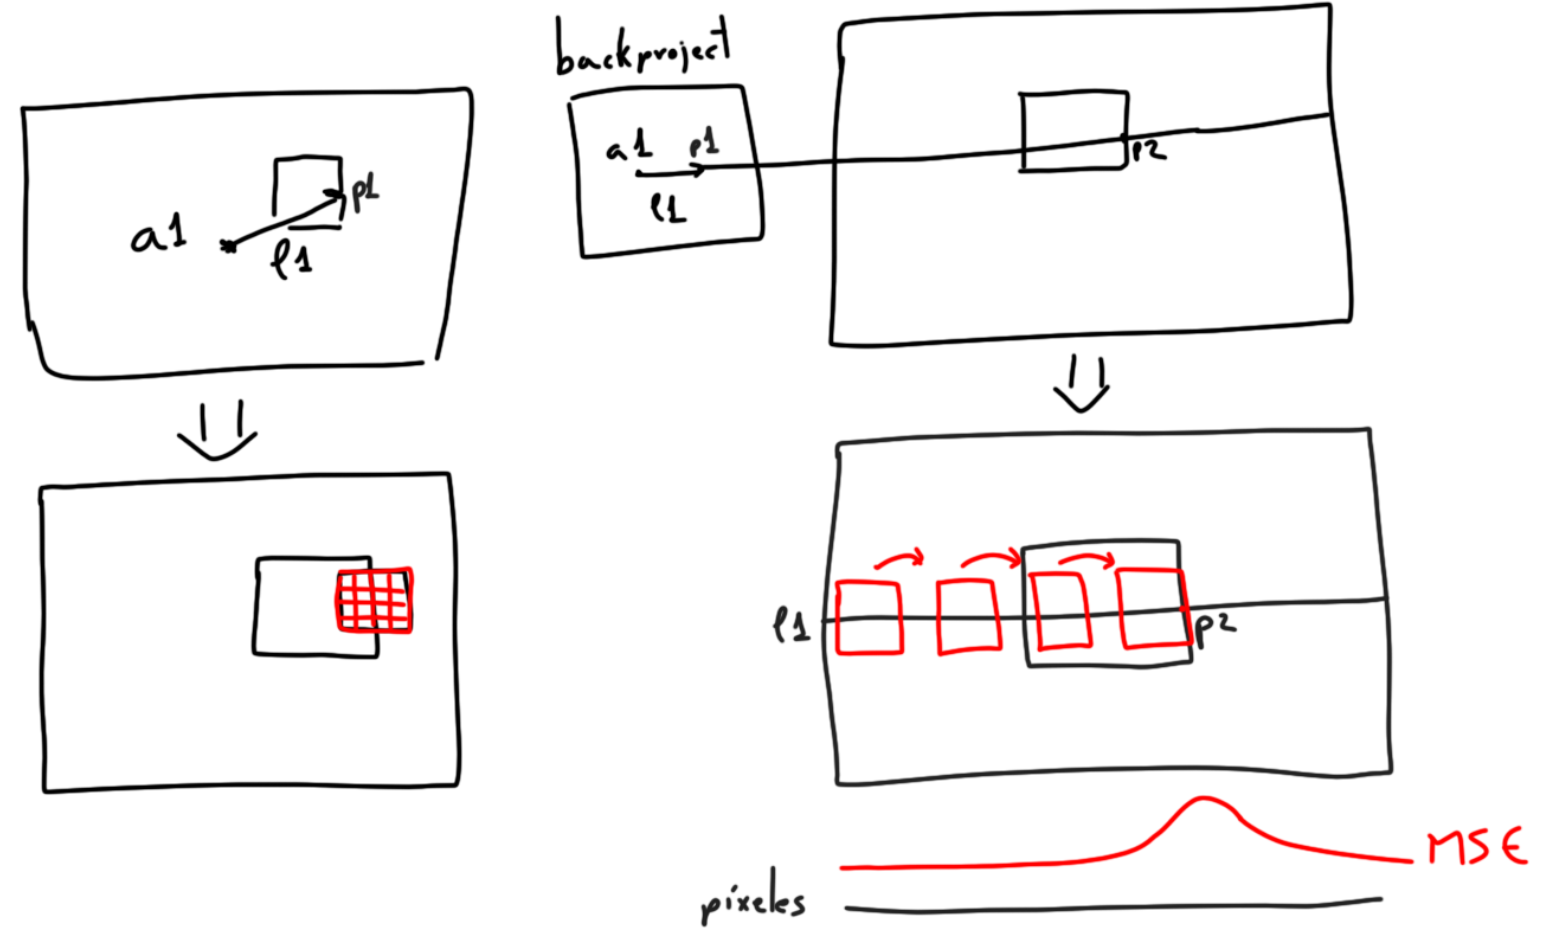 a1
p1
l1
backproject
a1 p1
l1
p2
l1
p2
MSE
pixeles